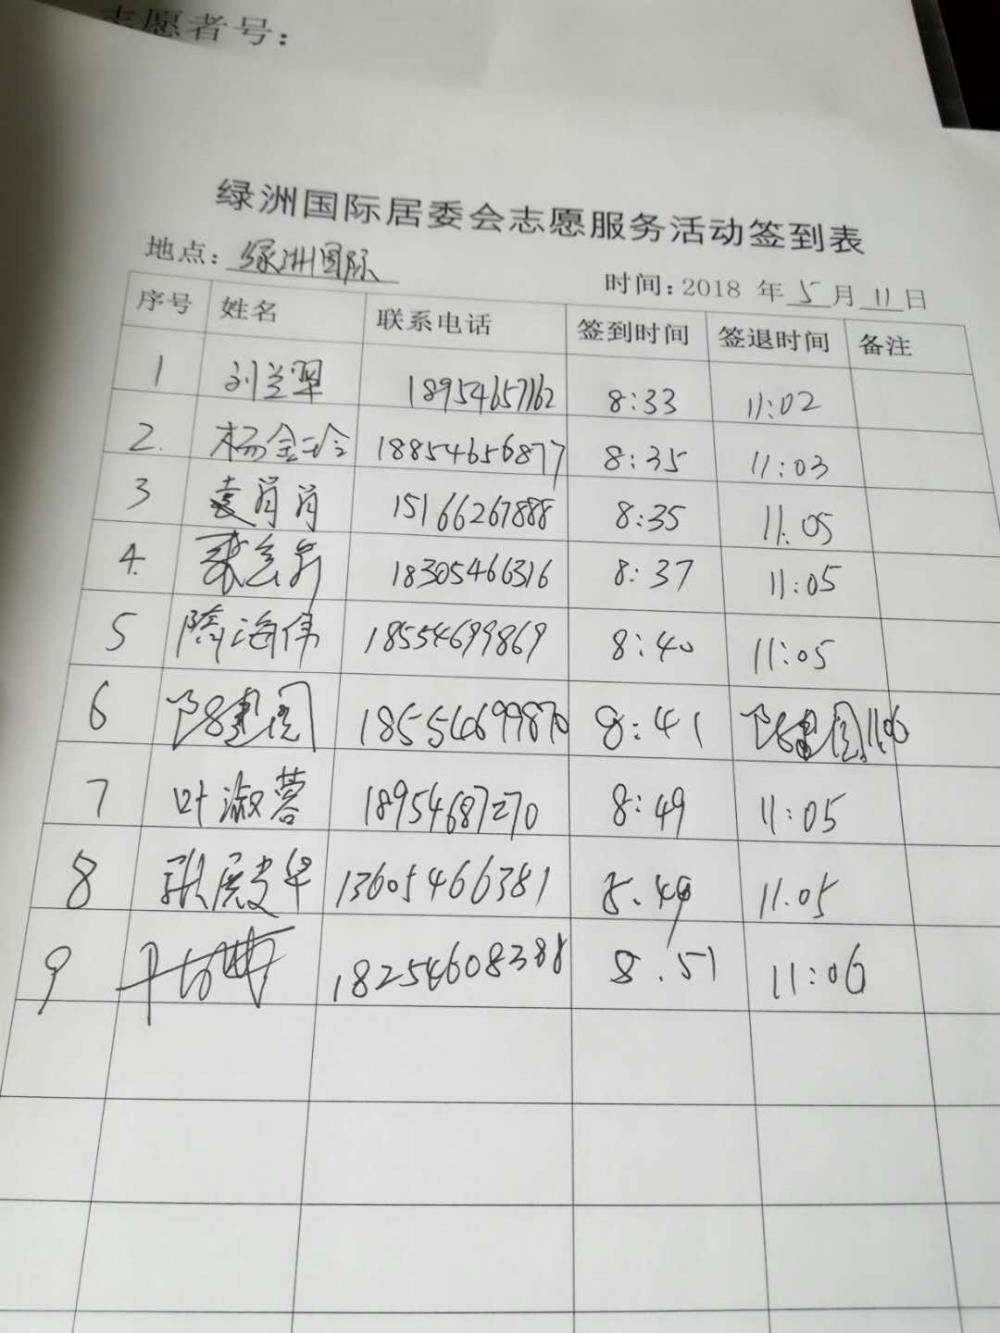 志愿者号：
绿洲国际居委会志愿服务活动签到表
地点：绿洲国际 时间：2018 年 5 月 11 日
序号 姓名 联系电话 签到时间 签退时间 备注
1 刘兰翠 18954657162 8:33 11:02
2. 杨金玲 18854656877 8:35 11:03
3 袁肖肖 15166267888 8:35 11:05
4. 18305466316 8:37 11:05
5 隋海伟 18554699869 8:40 11:05
6 18554699870 8:41 11:06
7 叶淑蓉 18954687270 8:49 11:05
8 13605466381 8.49 11.05
9 18254608388 8.51 11:06